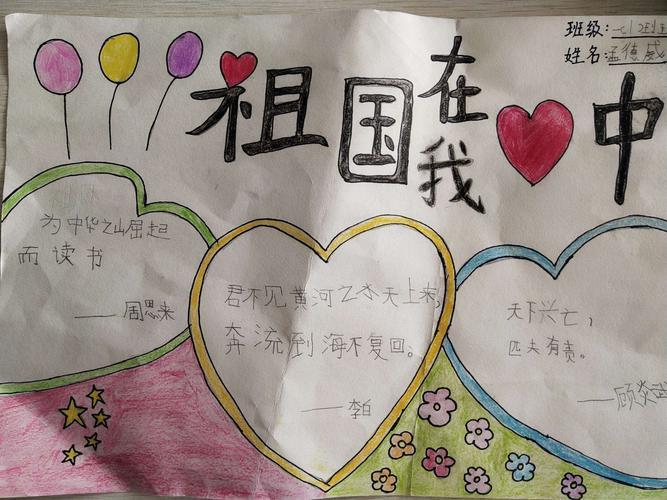 班级:
姓名:孟德威
祖国在我中
为中华之崛起
而读书
——周恩来
君不见黄河之水天上来,
奔流到海不复回。
——李白
天下兴亡,
匹夫有责。
——顾炎武